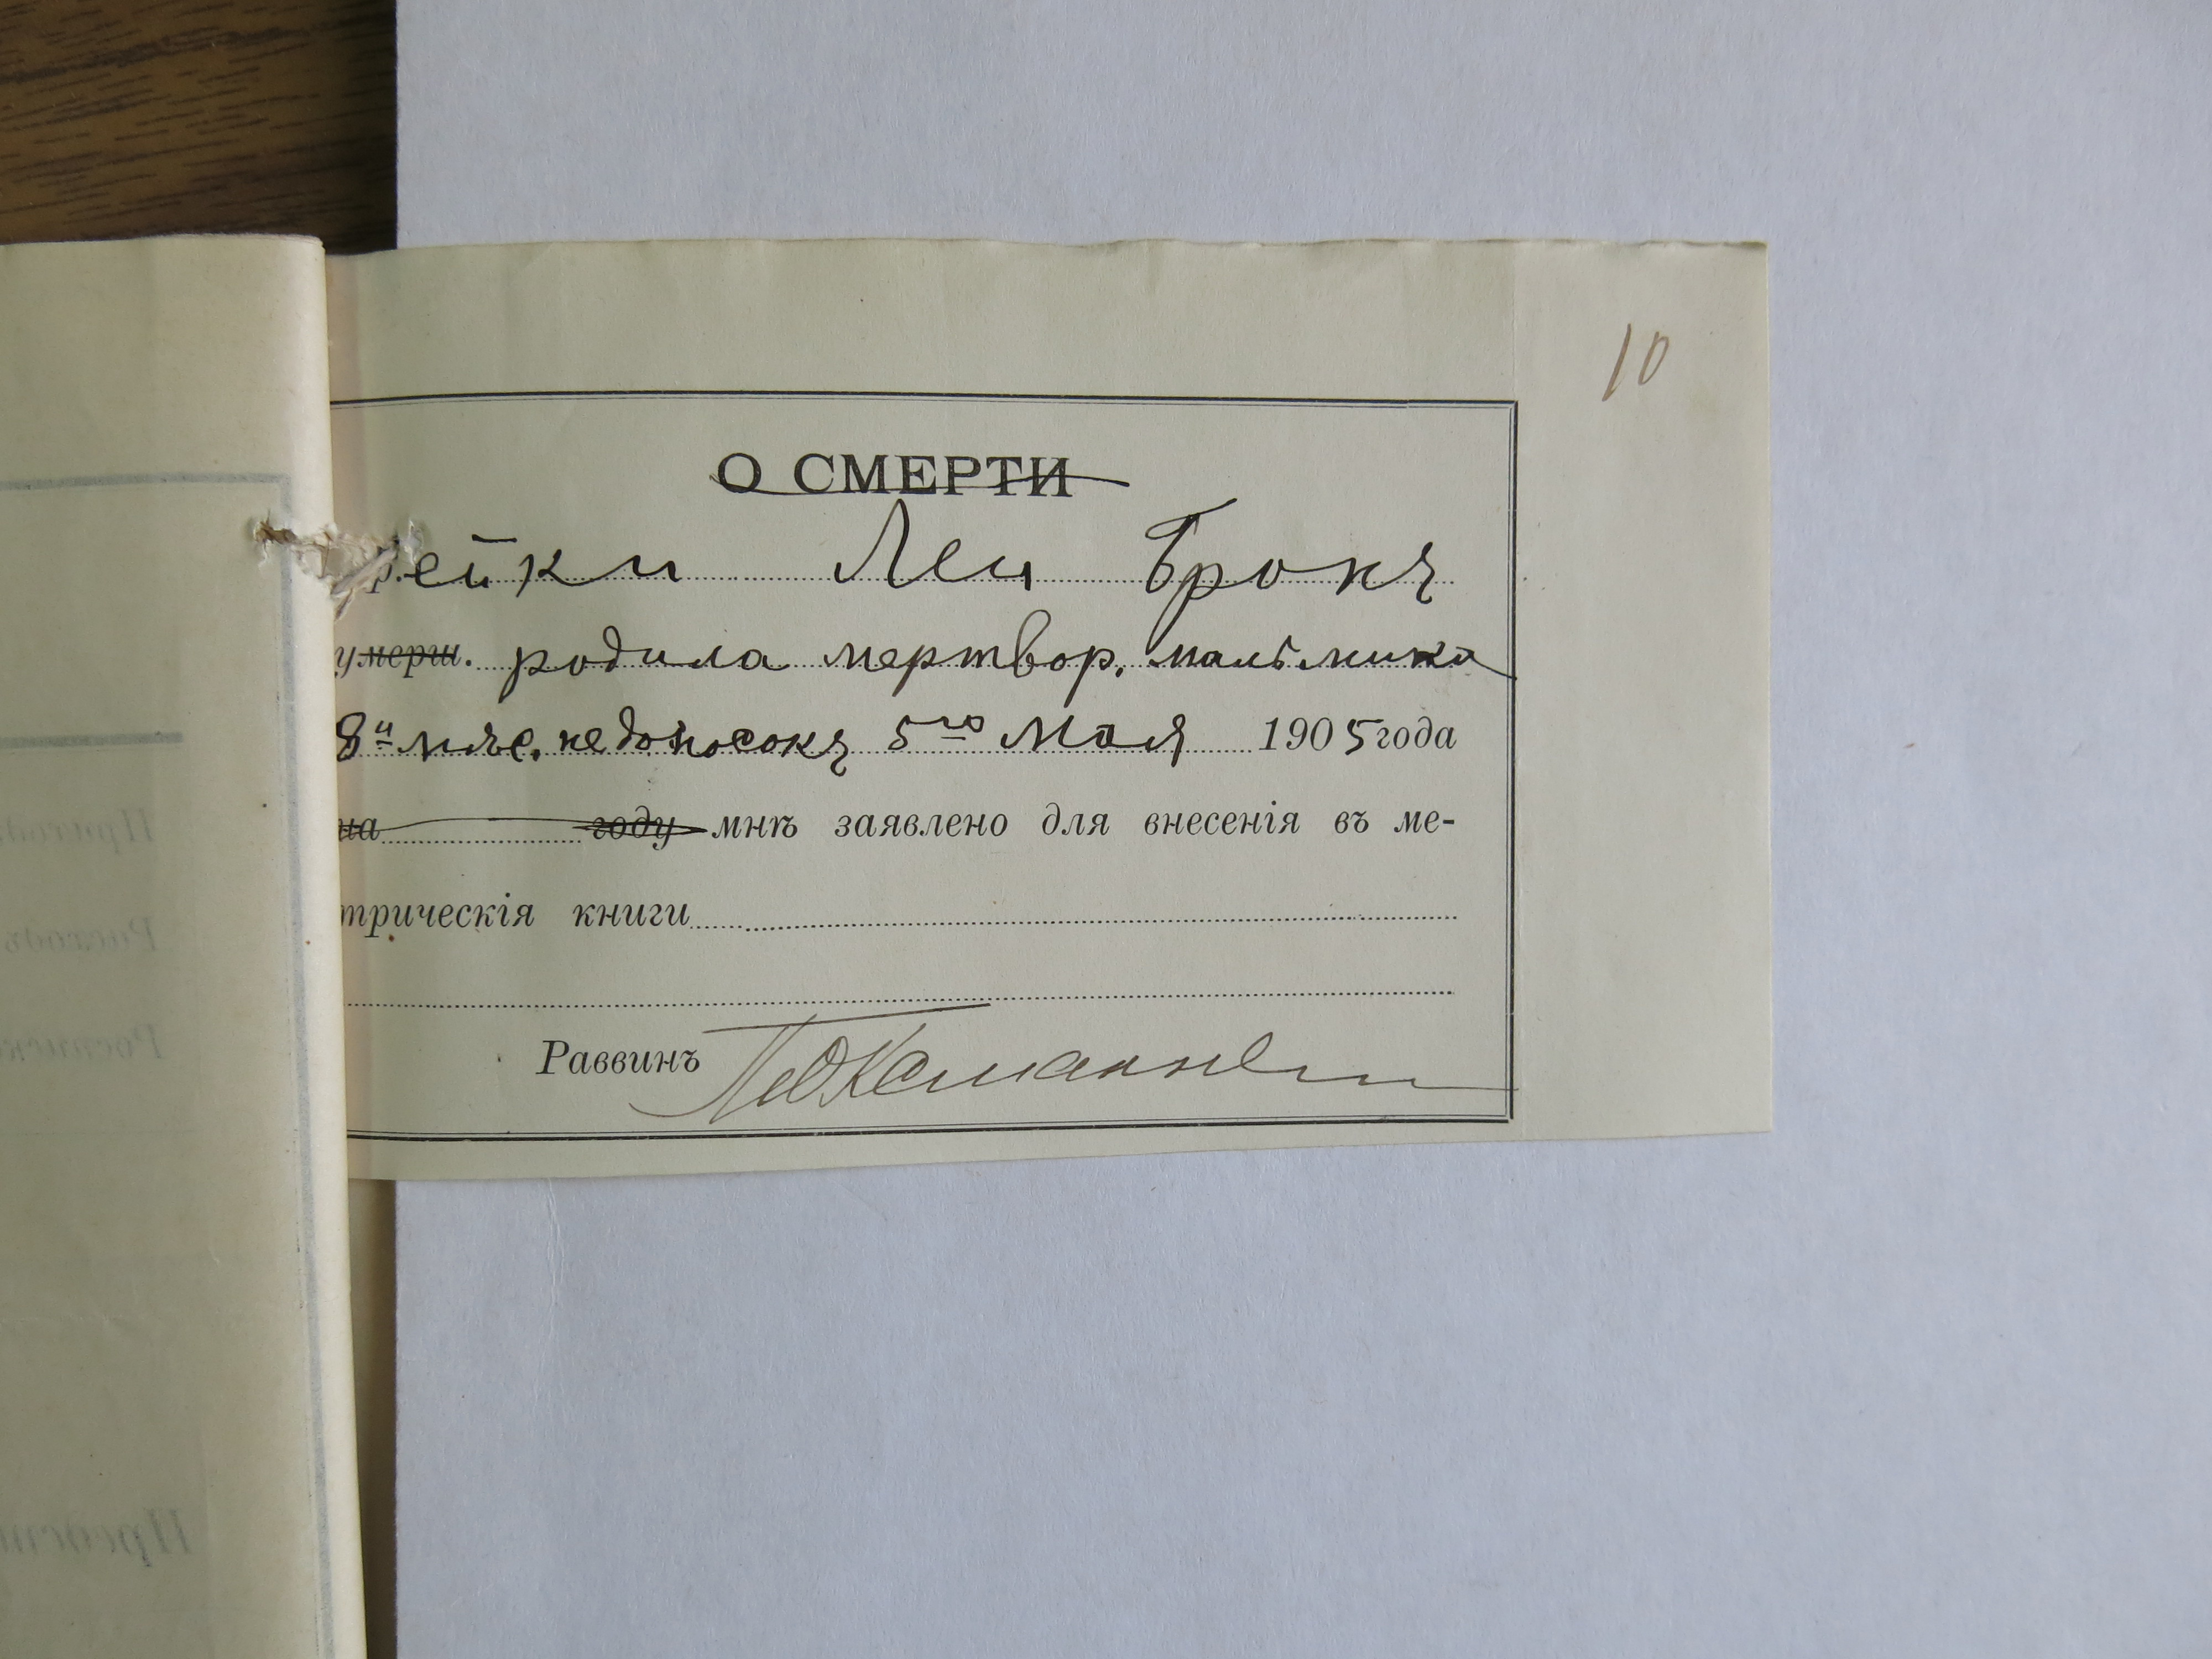 10
О СМЕРТИ
рейки Леи Брокъ
умерш. родила мертвор. мальчика
8ми мѣс. недоносокъ 5го Мая 1905 года
на году мнѣ заявлено для внесенія въ ме-
трическія книги
Раввинъ